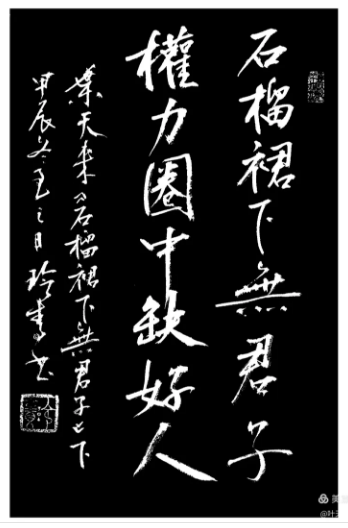 石榴裙下無君子
權力圈中缺好人
葉天來公石榴裙下無君子上下
甲辰冬至之日 玲青書
@叶